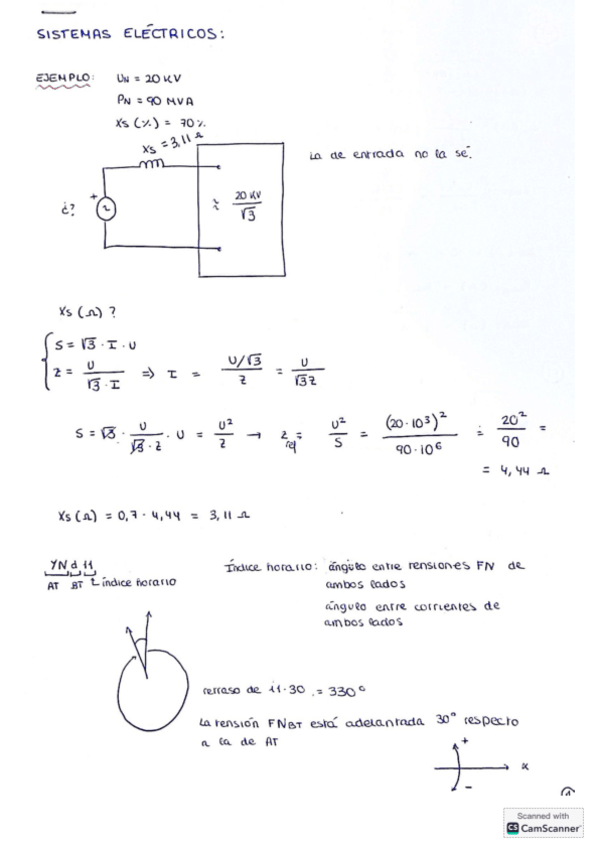 SISTEMAS ELÉCTRICOS:
EJEMPLO: UN = 20 KV
PN = 90 MVA
XS (%) = 70%
XS = 3,11 Ω
La de entrada no la sé.
¿? + ~ ≈ 20 KV / √3
XS (Ω) ?
S = √3 · I · U
Z = U / √3 · I => I = U/√3 / Z = U / √3Z
S = √3 · U / √3 · Z · U = U² / Z → Zref = U² / S = (20 · 10³)² / 90 · 10⁶ = 20² / 90 =
= 4,44 Ω
XS (Ω) = 0,7 · 4,44 = 3,11 Ω
YN d 11
AT BT índice horario
Índice horario: ángulo entre tensiones FN de
ambos lados
ángulo entre corrientes de
ambos lados
retraso de 11·30 = 330°
La tensión FNBT está adelantada 30° respecto
a la de AT
+
-
1
Scanned with
CS CamScanner